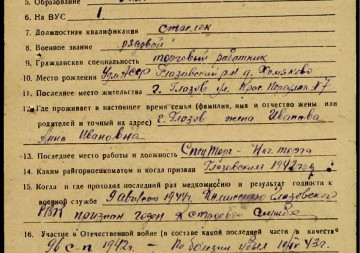 5. Образование
6. На ВУС 1
7. Должностная квалификация стрелок
8. Военное звание рядовой
9. Гражданская специальность торговый работник
10. Место рождения УдмАССР Глазовский р-н д. Хомяково
11. Последнее место жительства г. Глазов ул. Крас. №7
12. Где проживает в настоящее время семья (фамилия, имя и отчество жены или
родителей и точный их адрес) г. Глазов жена Иванова
Анна Ивановна
13. Последнее место работы и должность Спецторг - Нач. торга
14. Каким райгорвоенкоматом и когда призван Глазовским 1942 год
15. Когда и где проходил последний раз медкомиссию и результат годности к
военной службе 9 августа 1944г. Комиссией Глазовского
РВК признан годен к строевой службе
16. Участие в Отечественной войне (в составе какой последней части, в качестве
1942г. - По болезни убыл 43г.